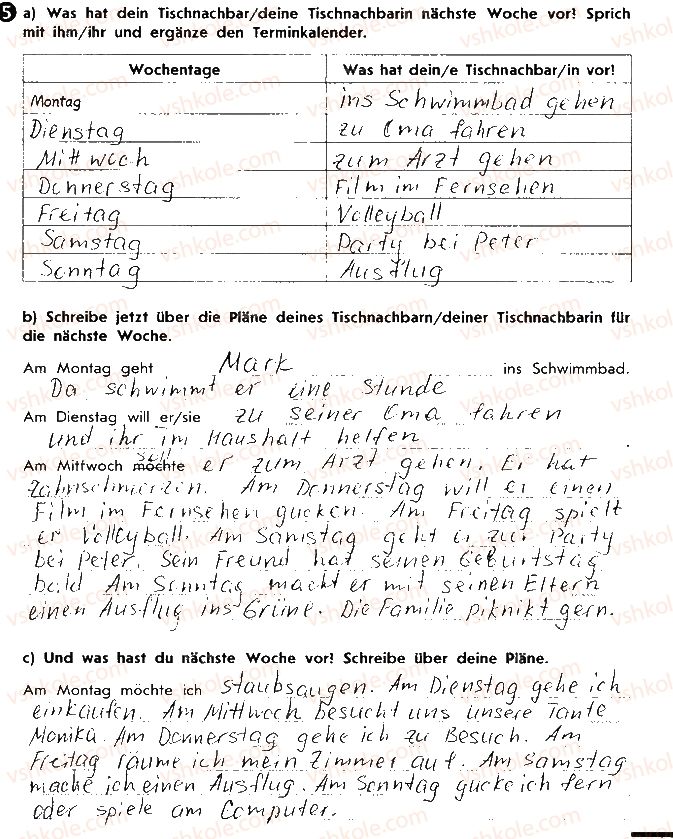 5 a) Was hat dein Tischnachbar/deine Tischnachbarin nächste Woche vor! Sprich
mit ihm/ihr und ergänze den Terminkalender.
Wochentage Was hat dein/e Tischnachbar/in vor!
Montag ins Schwimmbad gehen
Dienstag zu Oma fahren
Mittwoch zum Arzt gehen
Donnerstag Film im Fernsehen
Freitag Volleyball
Samstag Party bei Peter
Sonntag Ausflug
b) Schreibe jetzt über die Pläne deines Tischnachbarn/deiner Tischnachbarin für
die nächste Woche.
Am Montag geht Mark ins Schwimmbad.
Da schwimmt er eine Stunde
Am Dienstag will er/sie zu seiner Oma fahren
und ihr im Haushalt helfen
soll
Am Mittwoch möchte er zum Arzt gehen. Er hat
Zahnschmerzen. Am Donnerstag will er einen
Film im Fernsehen gucken. Am Freitag spielt
er Volleyball. Am Samstag geht er zur Party
bei Peter. Sein Freund hat seinen Geburtstag
bald. Am Sonntag macht er mit seinen Eltern
einen Ausflug ins Grüne. Die Familie piknikt gern.
c) Und was hast du nächste Woche vor! Schreibe über deine Pläne.
Am Montag möchte ich staubsaugen. Am Dienstag gehe ich
einkaufen. Am Mittwoch besucht uns unsere Tante
Monika. Am Donnerstag gehe ich zu Besuch. Am
Freitag räume ich mein Zimmer auf. Am Samstag
mache ich einen Ausflug. Am Sonntag gucke ich fern
oder spiele am Computer.
vshkole.com